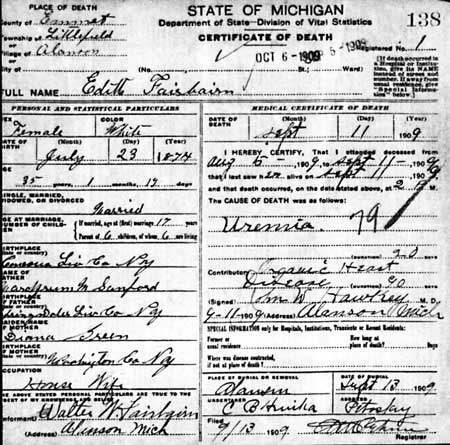 PLACE OF DEATH
STATE OF MICHIGAN
138
County of Emmet
Department of State—Division of Vital Statistics
Township of Littlefield
CERTIFICATE OF DEATH
Village of Alanson
OCT 6 - 1909
Registered No. 1
City of (No. St.; Ward)
(If death occurred in a Hospital or Institution, give its NAME instead of street and number. If away from usual residence, give "Special Information" below.)
FULL NAME Edith Fairbairn
PERSONAL AND STATISTICAL PARTICULARS
MEDICAL CERTIFICATE OF DEATH
SEX COLOR
Female White
DATE OF DEATH (Month) (Day) (Year)
Sept 11 1909
DATE OF BIRTH (Month) (Day) (Year)
July 23 1874
I HEREBY CERTIFY, That I attended deceased from
Aug 5 - 1909, to Sept 11 - 1909
that I last saw her alive on Sept 11 1909
AGE
35 years, 1 months, 19 days
and that death occurred, on the date stated above, at 2 M.
The CAUSE OF DEATH was as follows:
SINGLE, MARRIED, WIDOWED, OR DIVORCED
Married
Uremia 79
AGE AT MARRIAGE, NUMBER OF CHILDREN
If married, age at (first) marriage 17 years
Parent of 6 children, of whom 6 are living
BIRTHPLACE
Liv Co Ny
(DURATION)
Contributory Organic Heart
Disease
(DURATION)
NAME OF FATHER
M Sanford
BIRTHPLACE OF FATHER
Liv Co Ny
(Signed) M. D.
9-11 1909 (Address) Alanson Mich
MAIDEN NAME OF MOTHER
Diana Green
SPECIAL INFORMATION only for Hospitals, Institutions, Transients or Recent Residents:
Former or usual residence
How long at place of death? Days
BIRTHPLACE OF MOTHER
Washington Co Ny
Where was disease contracted, if not at place of death?
OCCUPATION
House Wife
PLACE OF BURIAL OR REMOVAL
DATE OF BURIAL
Sept 13 1909
THE ABOVE STATED PERSONAL PARTICULARS ARE TRUE TO THE BEST OF MY KNOWLEDGE AND BELIEF
UNDERTAKER
ADDRESS
C B
Petoskey
(Informant) Walter W Fairbairn
(Address) Alanson Mich
Filed 9/13 1909